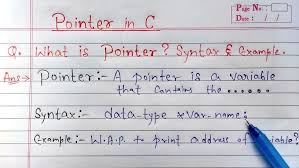 Pointer in C
Page No.:
Date: / /
Q. What is Pointer? Syntax & Example.
Ans→ Pointer:- A pointer is a variable
that contains the ......
Syntax:- data-type *var-name;
Example:- W.A.P to print address of variable?